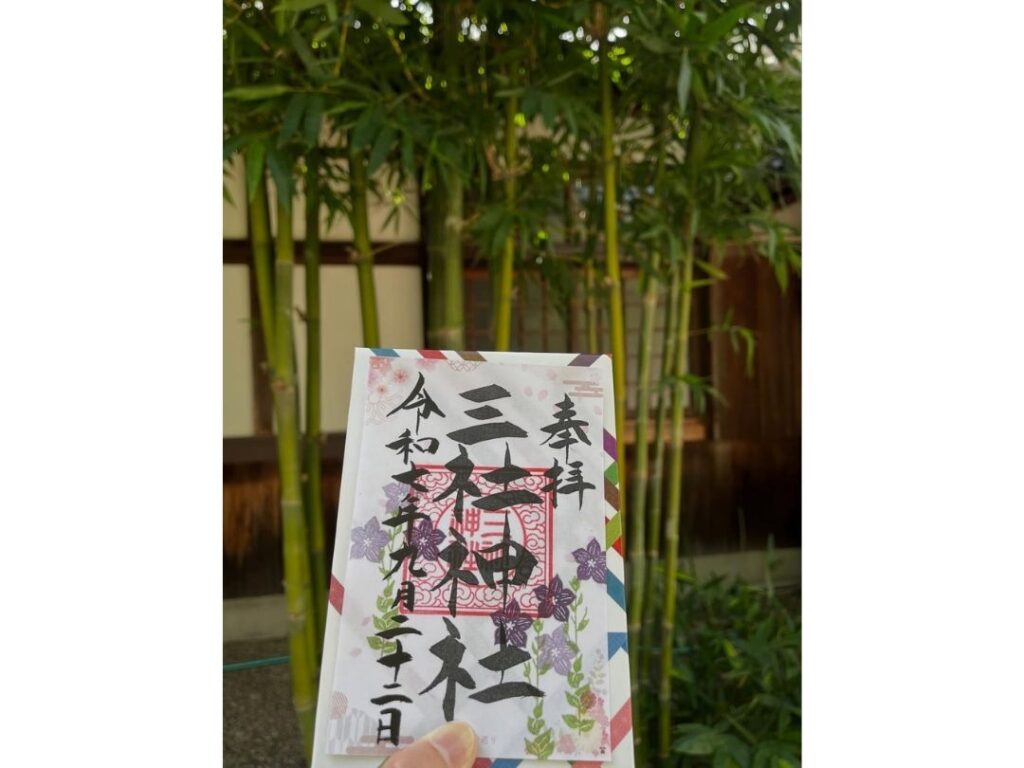 奉拝
三社神社
令和七年九月二十二日